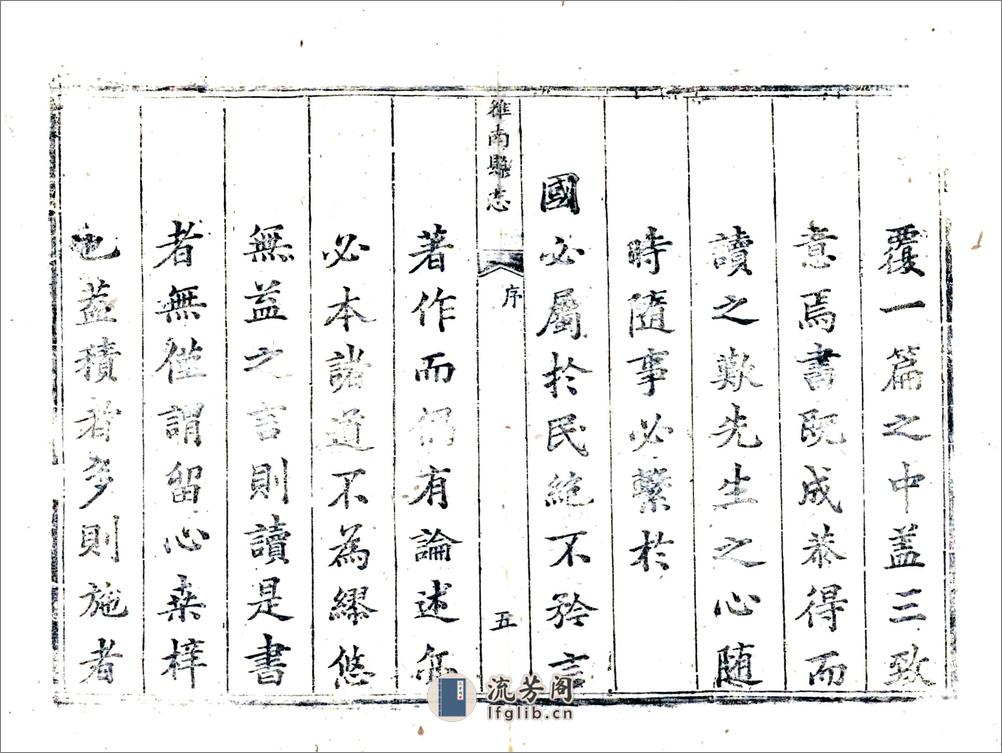 覆一篇之中盖三致
意焉書既成恭得而
讀之歎先生之心随
時隨事必繫於
國必屬於民絶不矜言
雒南縣志
序
五
著作而仍有論述亦
必本諸道不為繆悠
無益之言則讀是書
者無僅謂留心桑梓
也葢積者多則施者
流芳阁
lfglib.cn